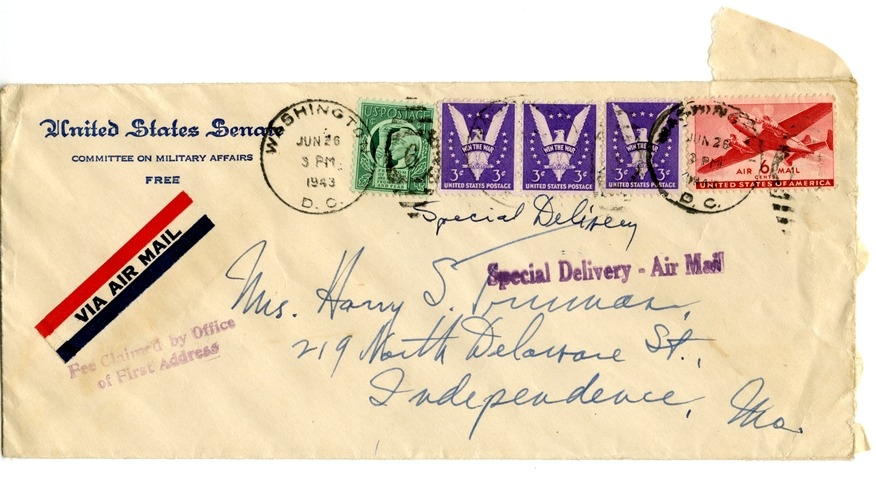 United States Senate
COMMITTEE ON MILITARY AFFAIRS
FREE
WASHINGTON
JUN 26
3 PM
1943
D. C.
U.S. POSTAGE
WIN THE WAR
3¢ 3¢
UNITED STATES POSTAGE
WIN THE WAR
3¢ 3¢
UNITED STATES POSTAGE
WIN THE WAR
3¢ 3¢
UNITED STATES POSTAGE
WASHINGTON
JUN 26
3 PM
D. C.
AIR 6 MAIL
CENTS
UNITED STATES OF AMERICA
Special Delivery
VIA AIR MAIL
Special Delivery - Air Mail
Fee Claimed by Office
of First Address
Mrs. Harry S. Truman,
219 North Delaware St.,
Independence, Mo.